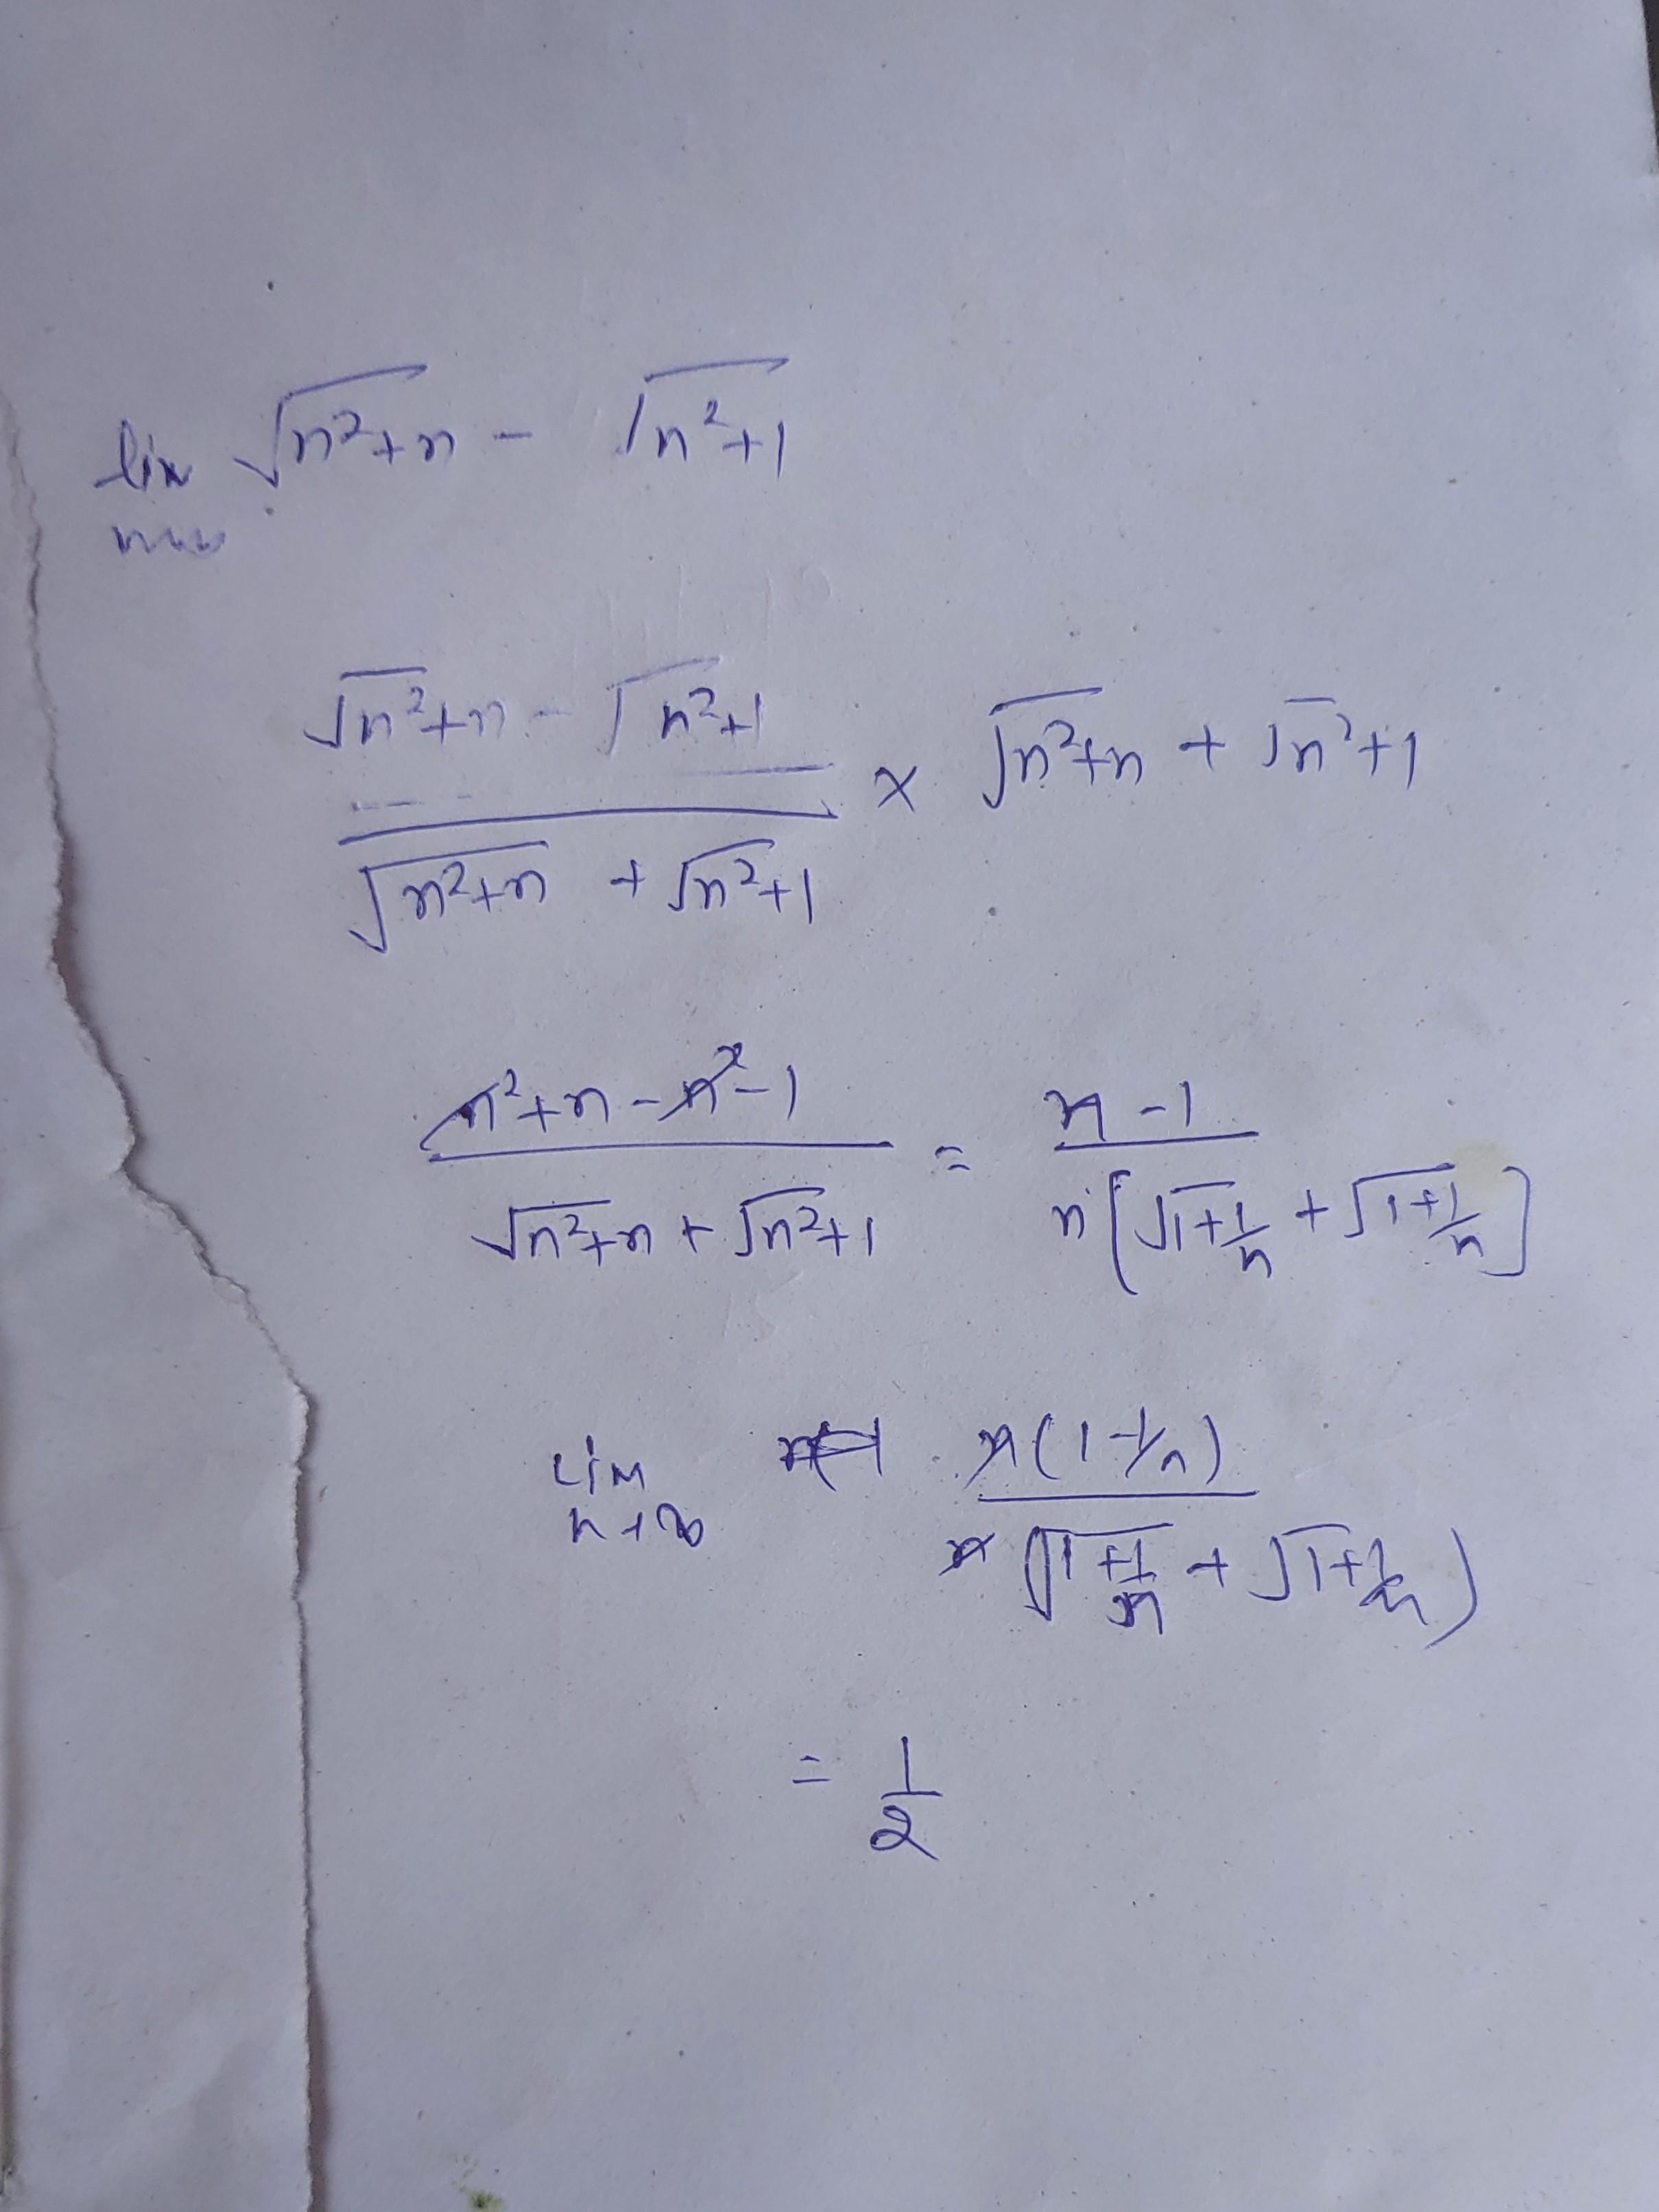 lim √n²+n - √n²+1
√n²+n - √n²+1 / √n²+n + √n²+1 × √n²+n + √n²+1
n²+n-n²-1 / √n²+n + √n²+1 = n-1 / n[√1+1/n + √1+1/n]
lim n→∞ n(1-1/n) / n(√1+1/n + √1+1/n)
= 1/2